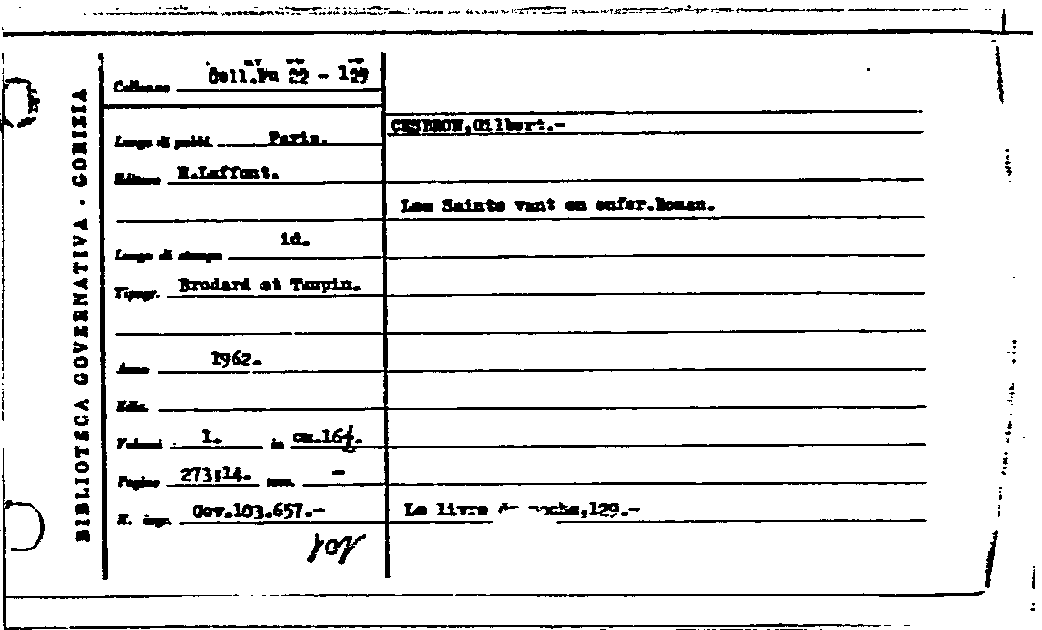 BIBLIOTECA GOVERNATIVA - GORIZIA
Collocaz. Coll.Fu 22 - 129
Luogo di pubbl. Paris.
Editore R.Laffont.
Luogo di stampa id.
Tipogr. Brodard et Taupin.
Anno 1962.
Ediz.
Volumi 1. in cm.16½.
Pagine 273:14. tav. -
N. ingr. Gov.103.657.-
CESBRON,Gilbert.-
Les Saints vont en enfer.Roman.
Le livre de poche,129.-